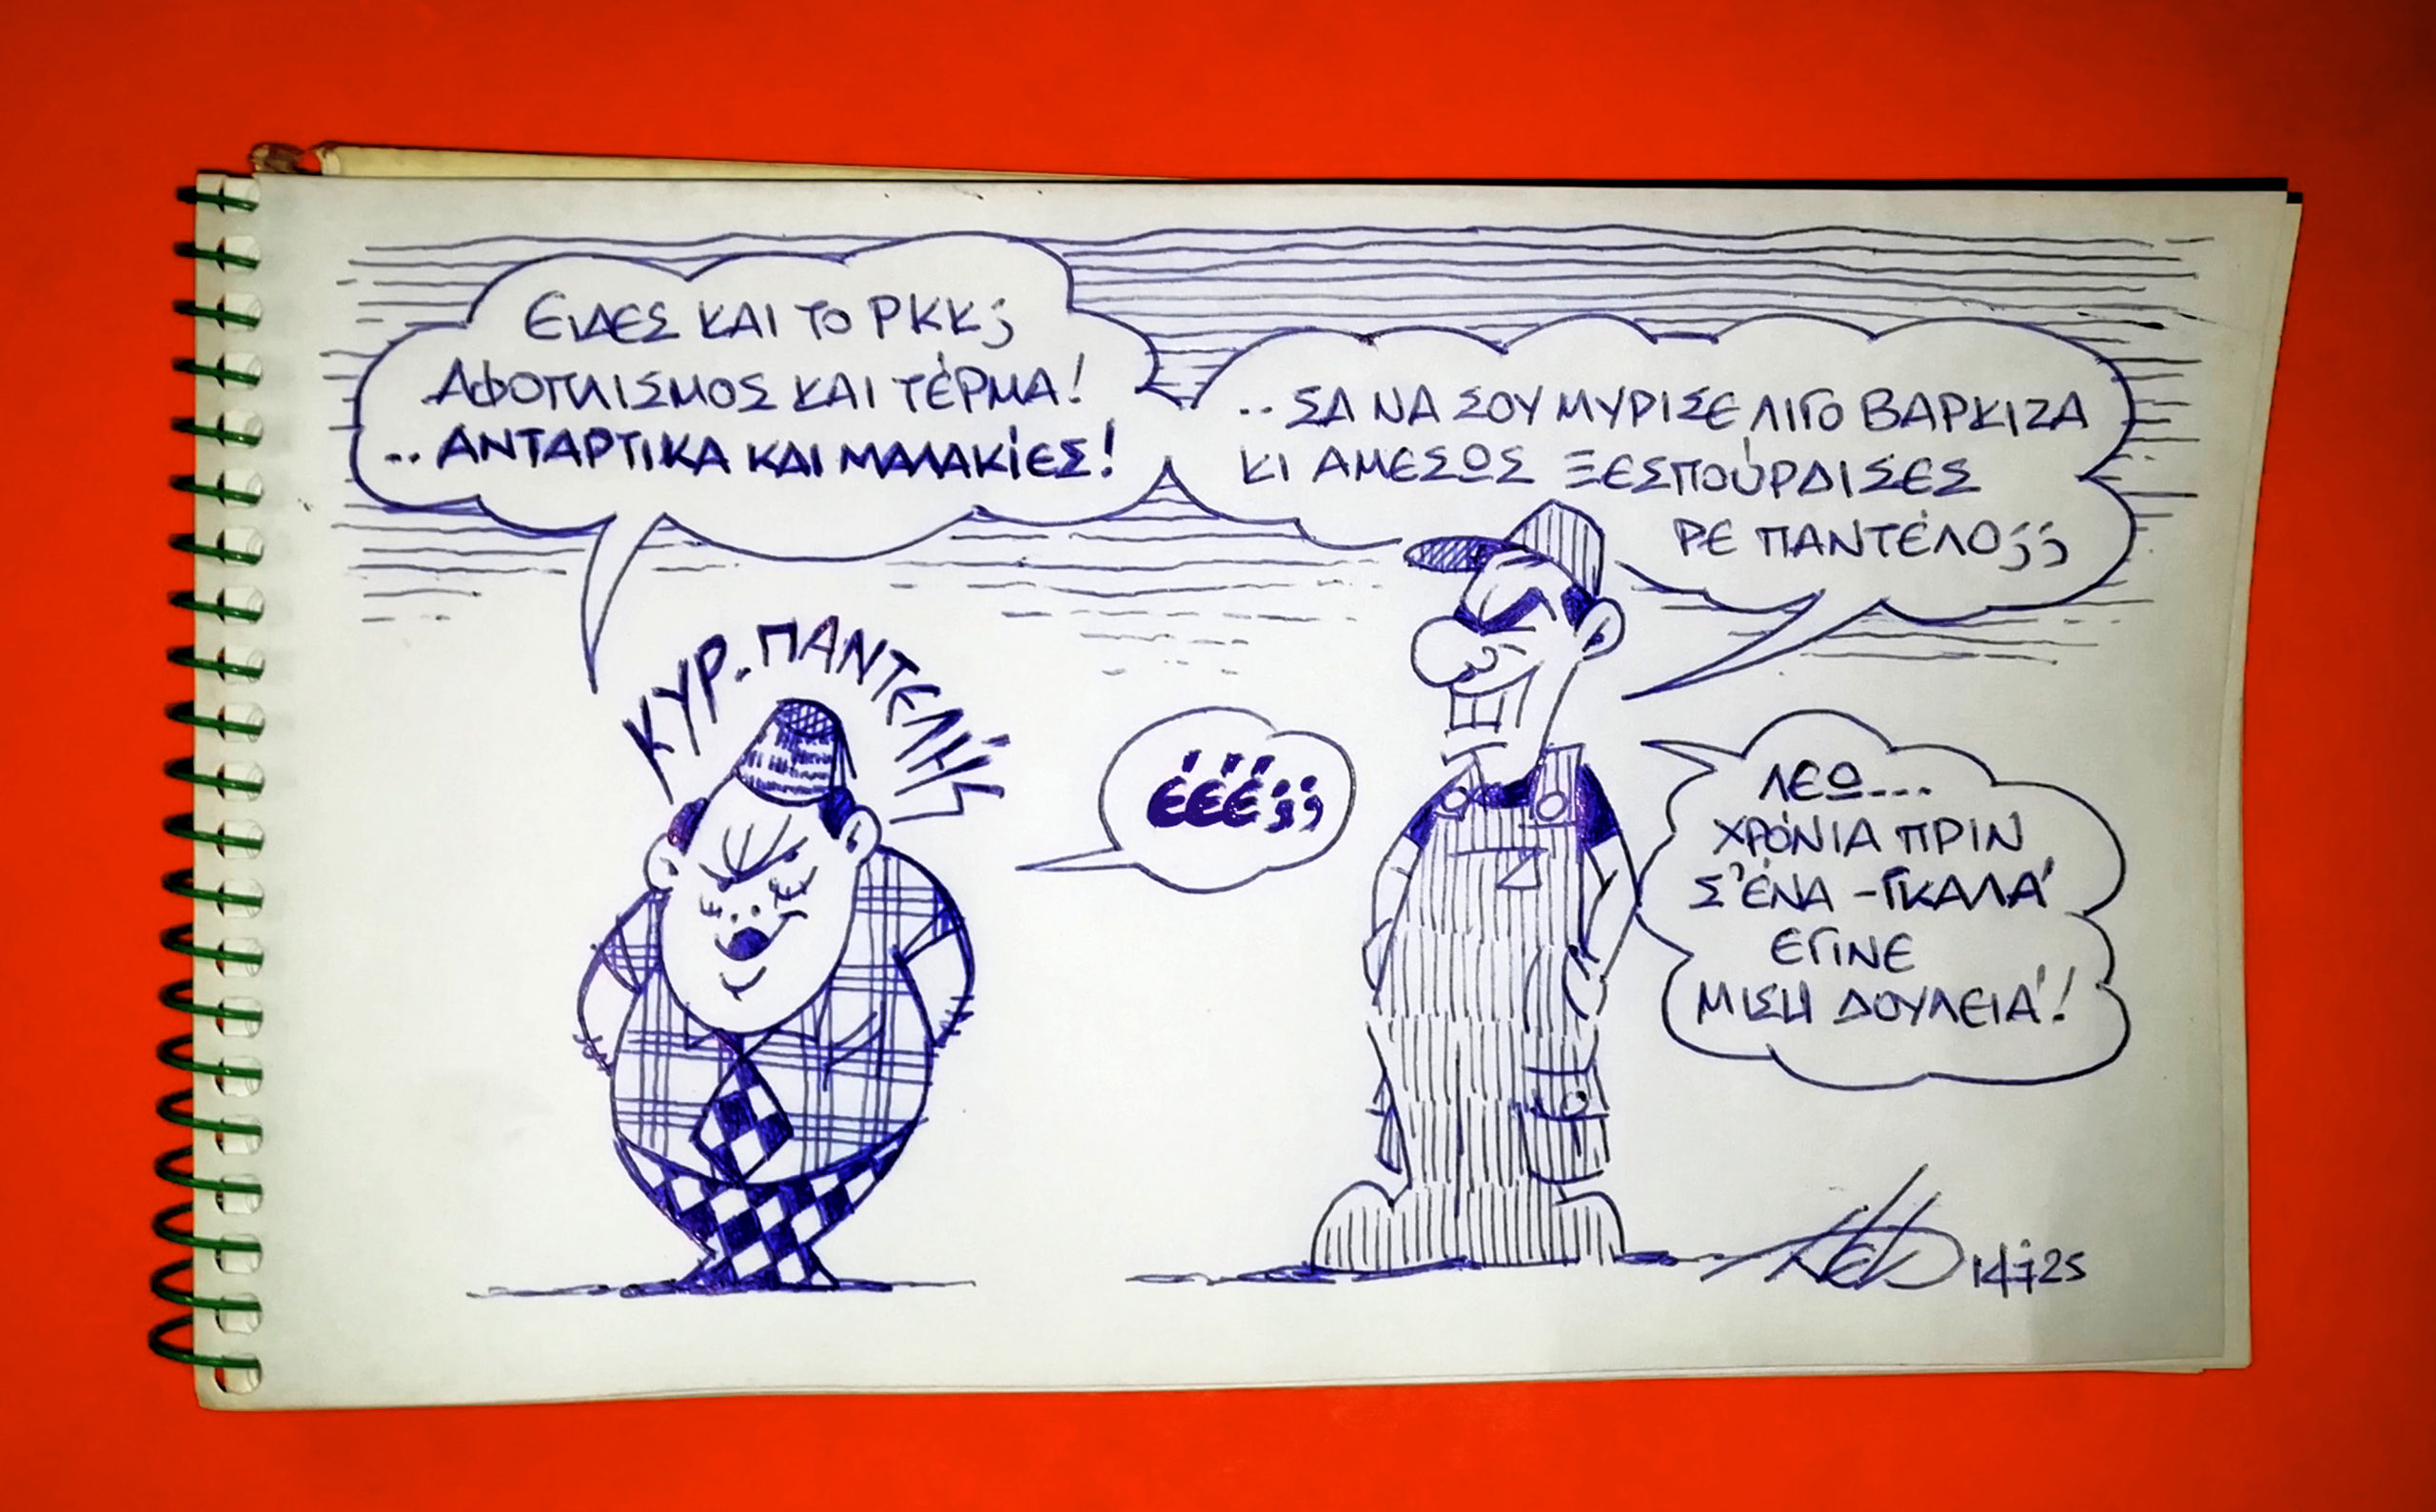 ΕΙΔΕΣ ΚΑΙ ΤΟ PKK;
ΑΦΟΠΛΙΣΜΟΣ ΚΑΙ ΤΈΡΜΑ!
..ΑΝΤΑΡΤΙΚΑ ΚΑΙ ΜΑΛΑΚΊΕΣ!
..ΣΑ ΝΑ ΣΟΥ ΜΥΡΙΣΕ ΛΙΓΟ ΒΑΡΚΙΖΑ
ΚΙ ΑΜΕΣΩΣ ΞΕΣΠΟΎΡΔΙΣΕΣ
ΡΕ ΠΑΝΤΈΛΟ;;
ΚΥΡ-ΠΑΝΤΕΛΉΣ
ΈΈΈ;;
ΛΕΩ...
ΧΡΌΝΙΑ ΠΡΙΝ
Σ'ΈΝΑ -ΓΚΑΛΆ
ΕΓΙΝΕ
ΜΙΣΗ ΔΟΥΛΕΙΆ!
14.7.25